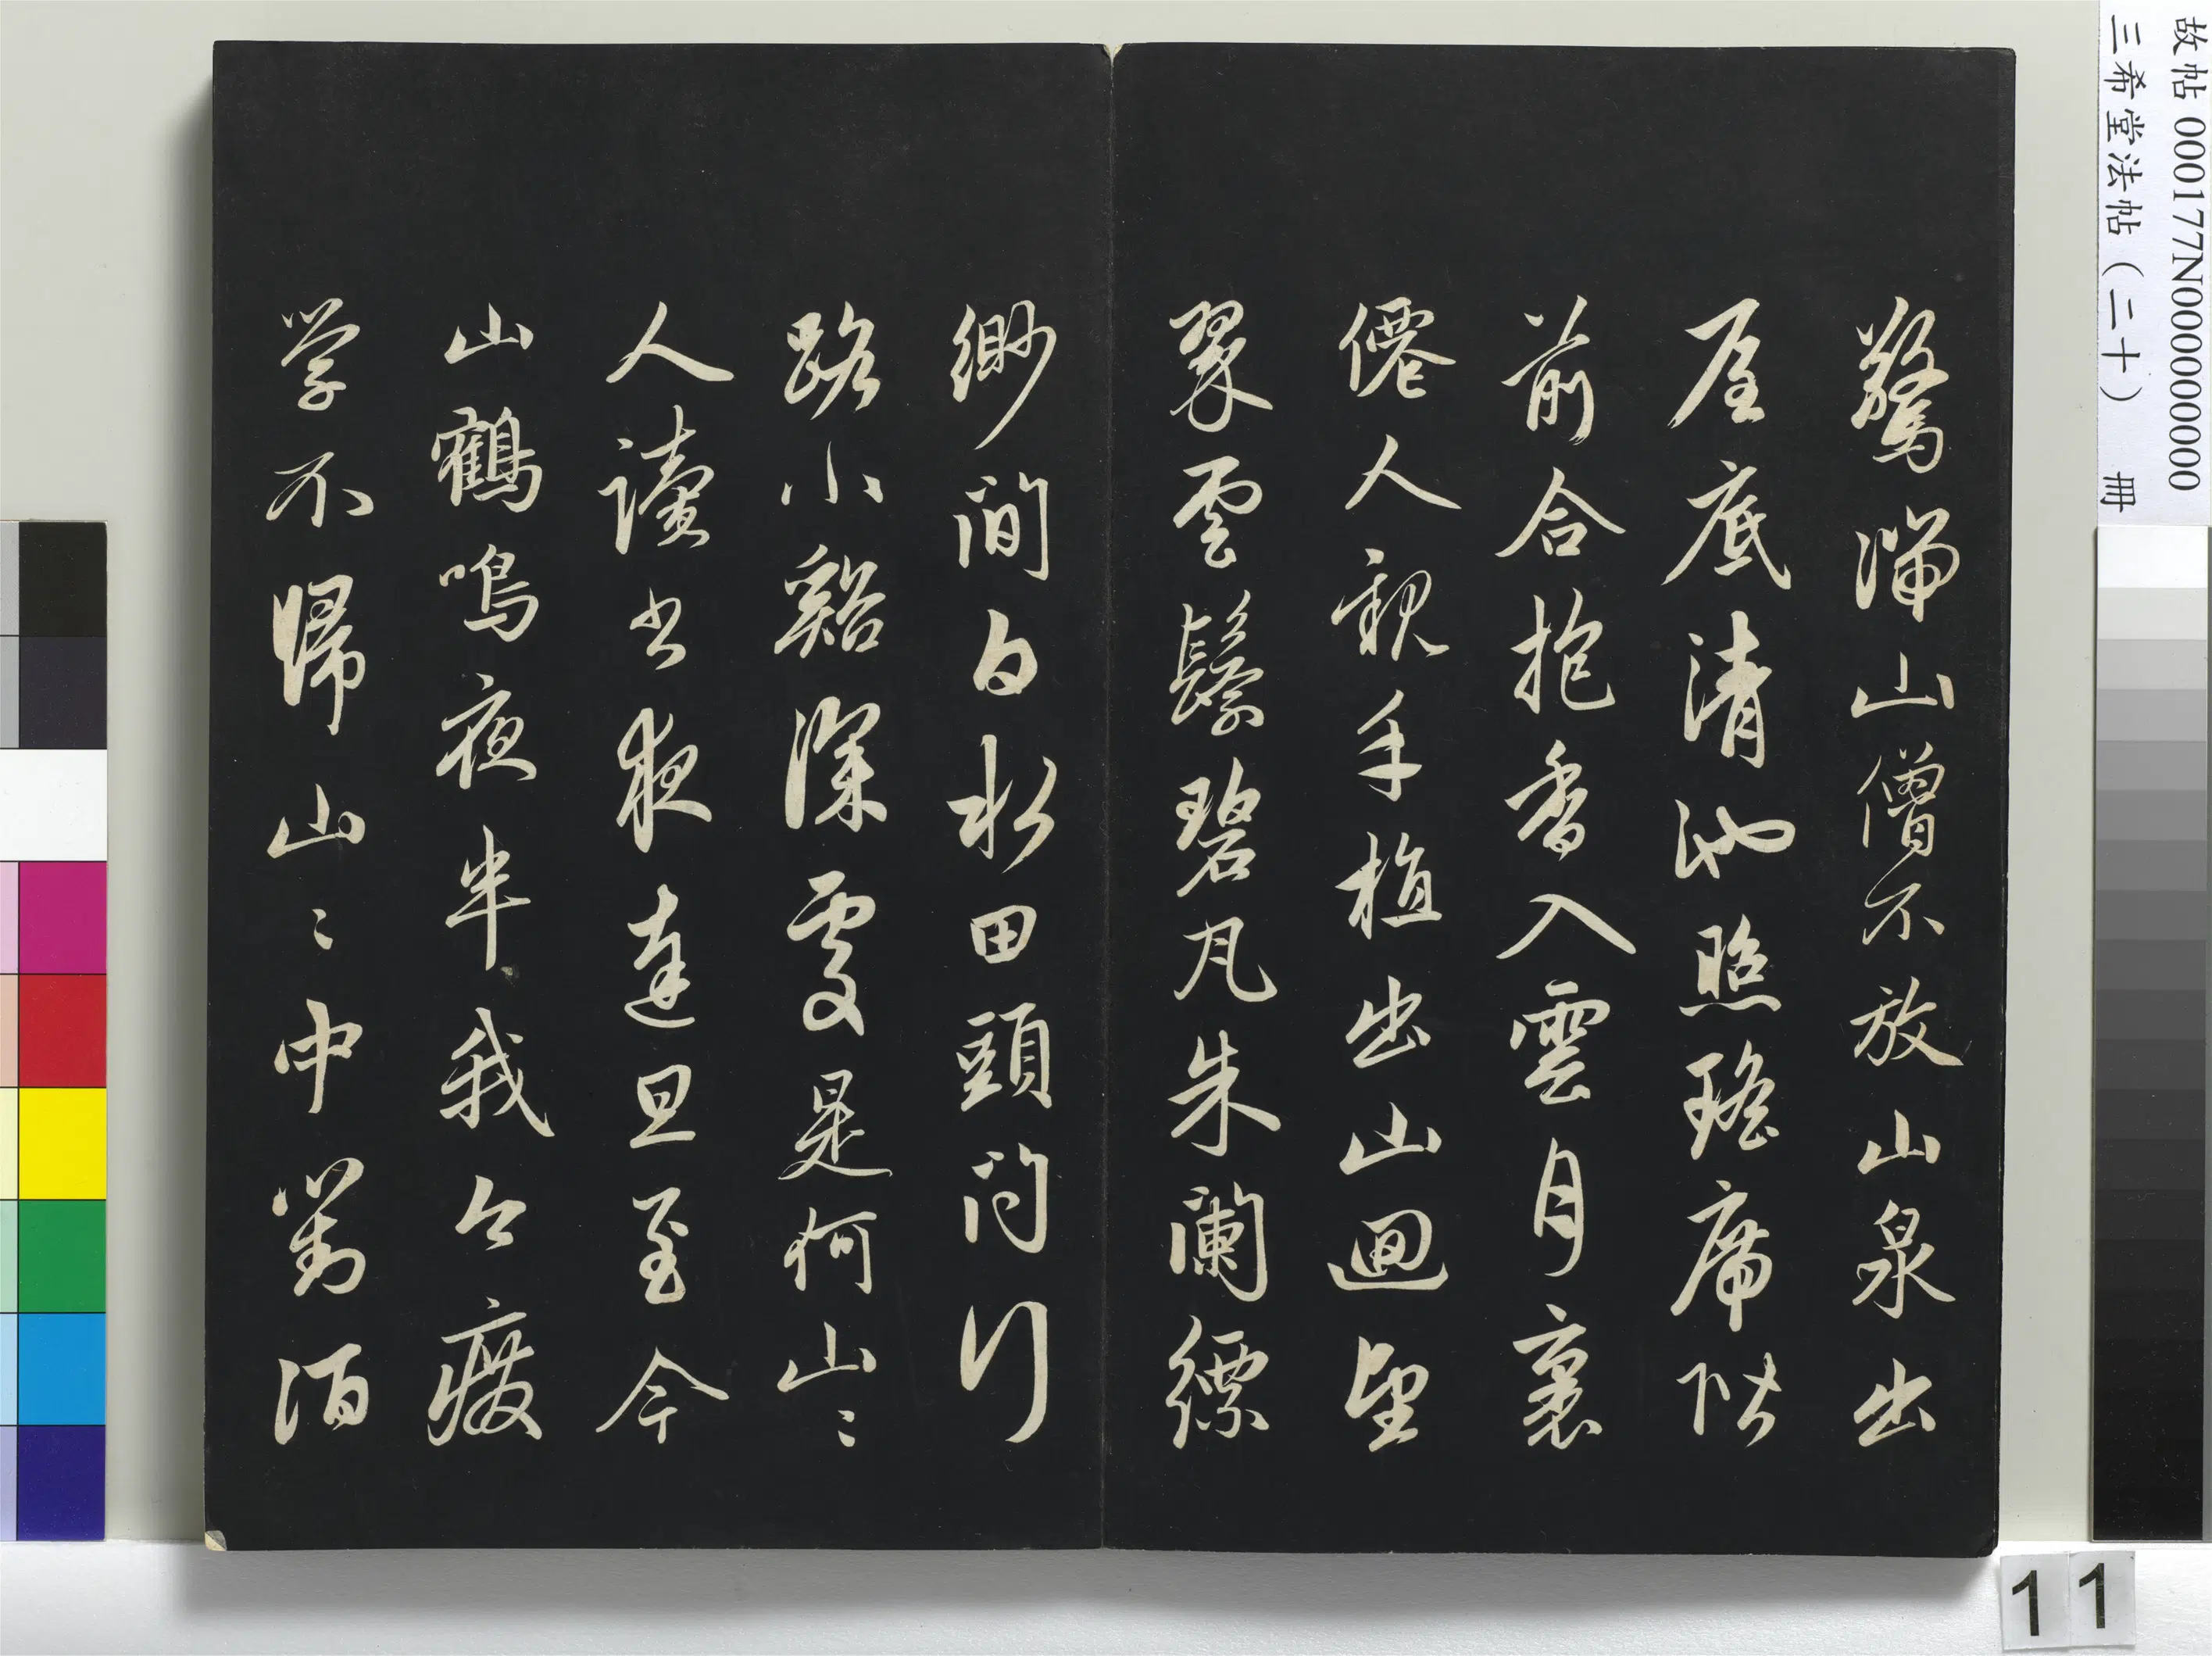 驚湍山僧不放山泉出
屋底清池照瑤席階
前合抱香入雲月裏
僊人親手植出山迴望
翠雲鬟碧瓦朱闌縹
緲間白水田頭問行
路小谿深處是何山〻
人讀書夜達旦至今
山鶴鳴夜半我今廢
学不歸山〻中對酒
故帖 000177N000000000
三希堂法帖（二十） 冊
11